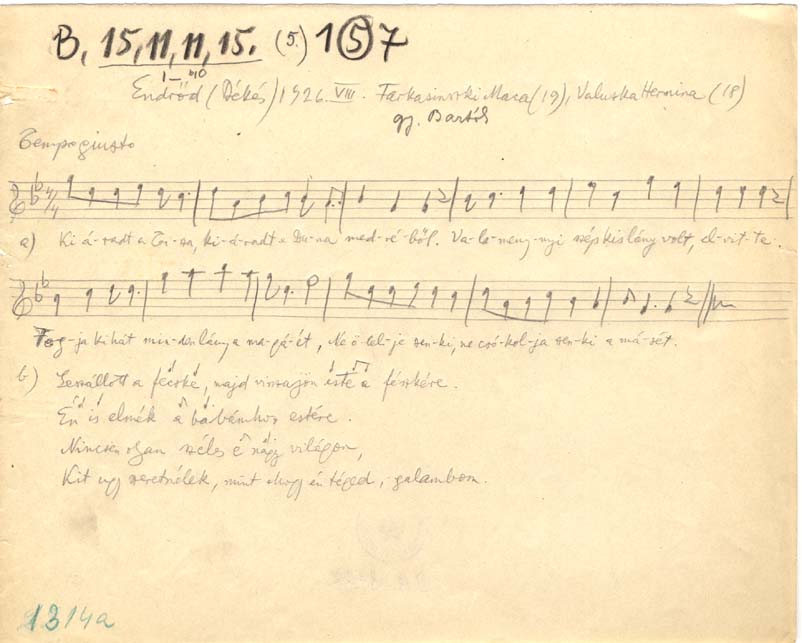 B, 15, 11, 11, 15. (5.) 1 5 7
1–10
Endrőd (Békés) 1926. VIII. Farkasinszki Mara (19), Valuska Hermina (18)
gy. Bartók
Tempo giusto
4/4
a) Ki-á-radt a Ti-sza, ki-á-radt a Du-na med-ré-ből. Va-la-meny-nyi szép kislány volt, el-vit-te.
Fog-ja ki hát min-den lány a ma-gá-ét, Ne ö-lel-je sen-ki, ne csó-kol-ja sen-ki a má-sét.
b) Leszállott a fecske, majd visszajön este a fészkére.
Én is elmék a babámhoz estére.
Nincsen olyan széles e nagy világon,
Kit úgy szeretnélek, mint ahogy én téged, galambom.
1314a